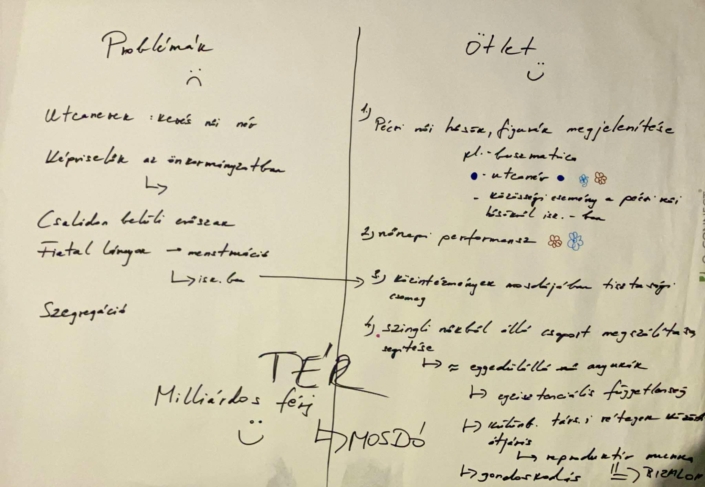 Problémák
Utcanevek : kevés női név
Képviselők az önkormányzatban
Családon belüli erőszak
Fiatal lányok → menstruáció
↳ isk. ban
Szegregáció
TÉR
Milliárdos férj
↳ MOSDÓ
Ötlet
1) Pécsi női hősök, figurák megjelenítése
pl. - buszmatrica
- utcanév
- közösségi esemény a pécsi női
hősökről isk. - ban
2) nőnapi performansz
3) közintézmények mosdójában tisztasági
csomag
4) szingli nőkből álló csoport megszólítása,
segítése
↳ = egyedülálló nő anyukák
↳ egzisztenciális függetlenség
↳ különb. társ. i rétegek között
átjárás
↳ reproduktív munka
↳ gondoskodás ⇒ BIZALOM